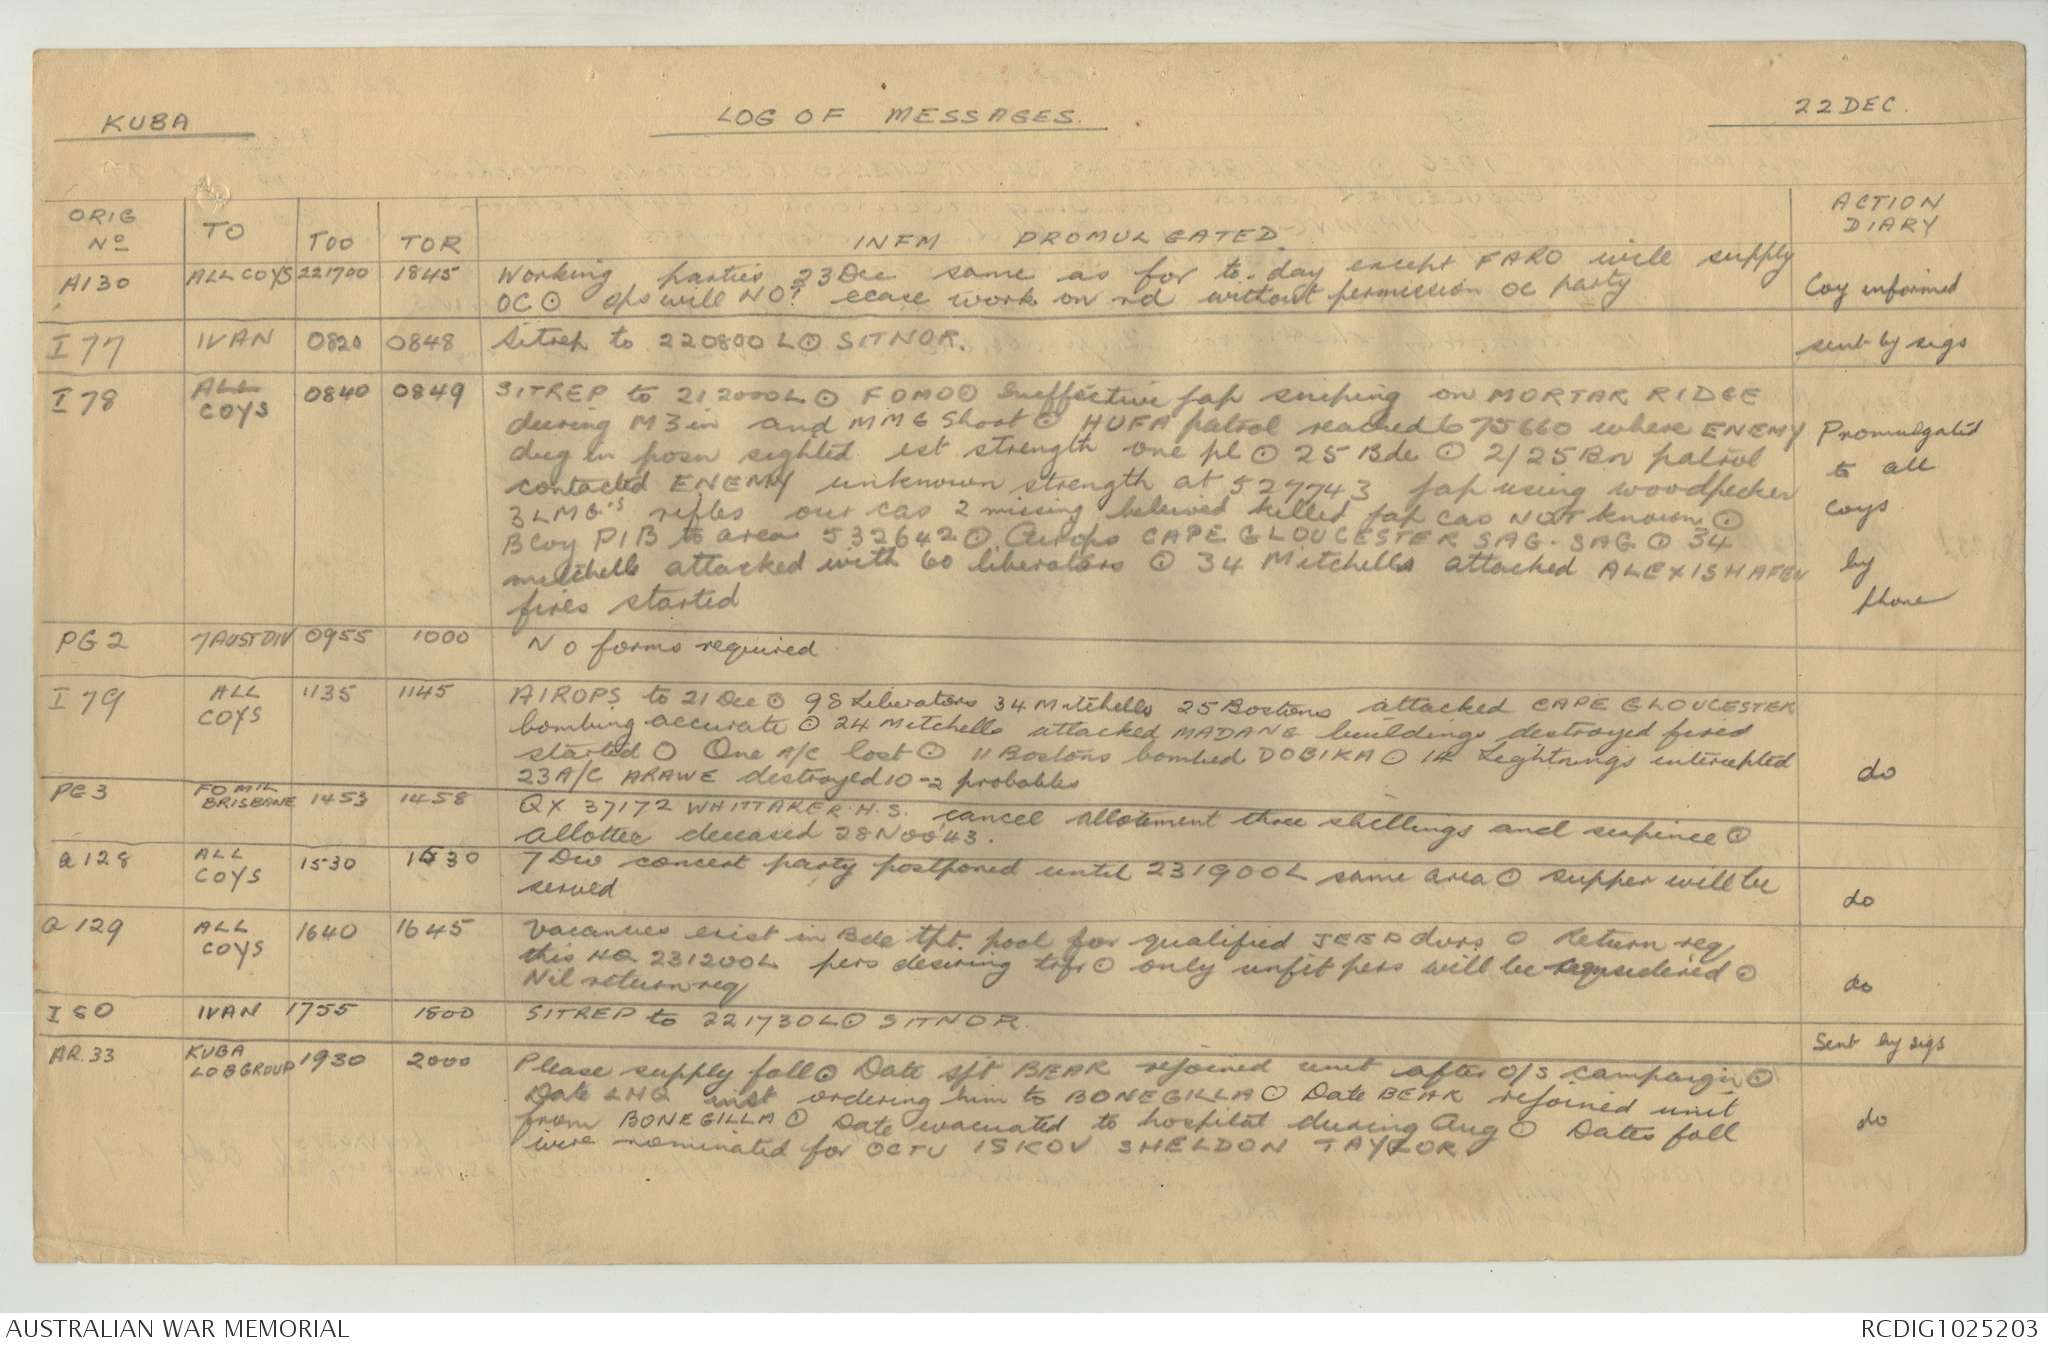 KUBA
LOG OF MESSAGES.
22 DEC.
ORIG
No
TO
TOO
TOR
INFM PROMULGATED.
ACTION
DIARY
A130 ALL COYS 221700 1845 Working parties 23 Dec same as for to-day except FARO will supply
OC ⊙ ops will NOT cease work on rd without permission oc party
Coy informed
I 77 IVAN 0820 0848 Sitrep to 220800L ⊙ SITNOR.
sent by sigs
I 78 ALL COYS 0840 0849 SITREP to 212000L ⊙ FOMO ⊙ Ineffective Jap sniping on MORTAR RIDGE
during M3in and MMG Shoot ⊙ HUFA patrol reached 675660 where ENEMY
dug in posn sighted est strength one pl ⊙ 25 Bde ⊙ 2/25 Bn patrol
contacted ENEMY unknown strength at 527743 Jap using woodpecker
3 LMG's rifles our cas 2 missing beleived killed Jap cas NOT known ⊙
B Coy PIB to area 532642 ⊙ Airops CAPE GLOUCESTER SAG-SAG ⊙ 34
mitchells attacked with 60 liberators ⊙ 34 Mitchells attacked ALEXISHAFEN
fires started
Promulgated
to all
coys
by
phone
PG 2 7 AUST DIV 0955 1000 No forms required
I 79 ALL COYS 1135 1145 AIROPS to 21 Dec ⊙ 98 Liberators 34 Mitchells 25 Bostons attacked CAPE GLOUCESTER
bombing accurate ⊙ 24 Mitchells attacked MADANG buildings destroyed fires
started ⊙ One A/C lost ⊙ 11 Bostons bombed DOBIKA ⊙ 14 Lightnings intercepted
23 A/C ARAWE destroyed 10-2 probables
do
PG 3 FO MIL BRISBANE 1453 1458 QX 37172 WHITTAKER. H.S. cancel allotement three shillings and sixpence ⊙
allottee deceased 28 Nov 43.
a 128 ALL COYS 1530 1530 7 Div concert party postponed until 231900L same area ⊙ supper will be
served
do
a 129 ALL COYS 1640 1645 Vacancies exist in Bde tpt. pool for qualified JEEP dvrs ⊙ Return req
this HQ 231200L pers desiring trfr ⊙ only unfit pers will be considered ⊙
Nil return req
do
I 80 IVAN 1755 1800 SITREP to 221730L ⊙ SITNOR.
Sent by sigs
AR. 33 KUBA LOB GROUP 1930 2000 Please supply foll ⊙ Date sjt BEAR rejoined unit after O/S campaign ⊙
Date LHQ inst ordering him to BONEGILLA ⊙ Date BEAR rejoined unit
from BONEGILLA ⊙ Date evacuated to hospital during Aug ⊙ Dates foll
were nominated for OCTU ISKOV SHELDON TAYLOR
do
AUSTRALIAN WAR MEMORIAL
RCDIG1025203